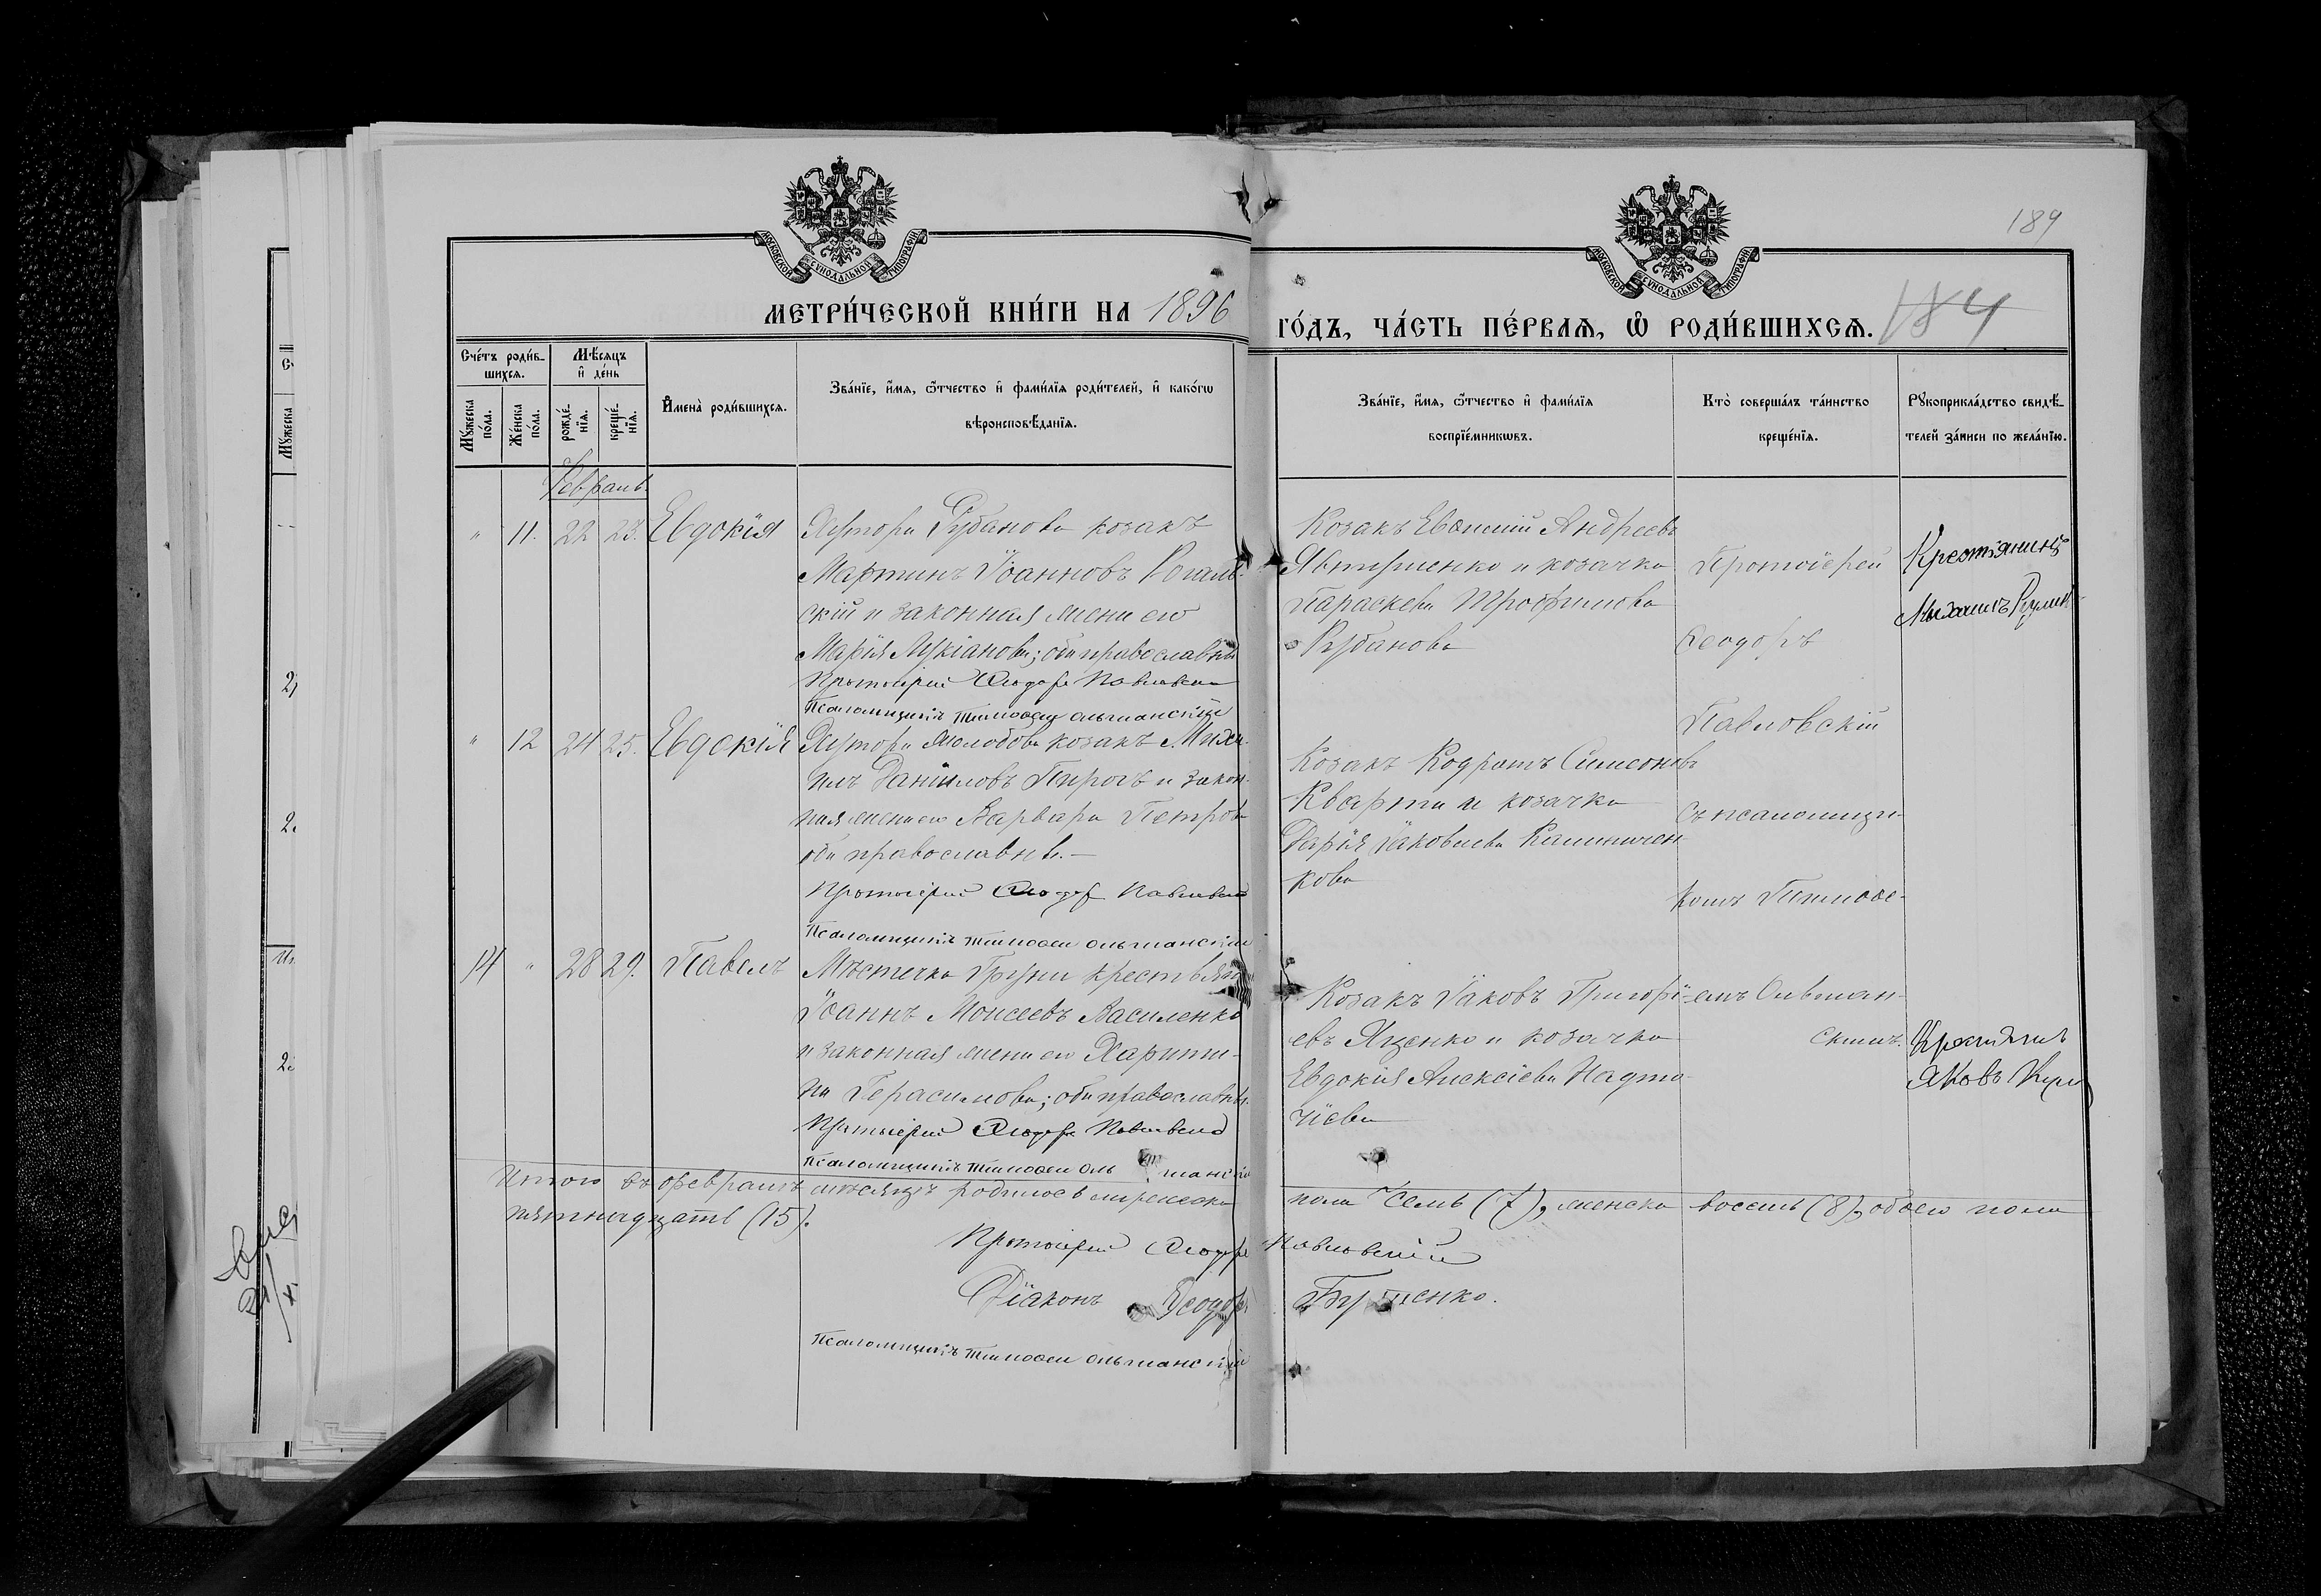 189
МОСКОВСКОЙ СѴНОДАЛЬНОЙ ТИПОГРАФІИ
МОСКОВСКОЙ СѴНОДАЛЬНОЙ ТИПОГРАФІИ
МЕТРИ́ЧЕСКОЙ КНИ́ГИ НА 1896
ГО́ДЪ, ЧА́СТЬ ПЕ́РВАѦ, Ѡ҆ РОДИ́ВШИХСѦ. 184
Сче́тъ роди́в-
шихсѧ.
Мѣ́сѧцъ
и҆ де́нь
Мꙋ́жеска
по́ла.
Же́нска
по́ла.
рожде́-
нїѧ.
креще́-
нїѧ.
И҆мена̀ роди́вшихсѧ.
Зва́нїе, и҆́мѧ, ѻ҆́тчество и҆ фами́лїѧ роди́телей, и҆ како́гѡ
вѣроисповѣ́данїѧ.
Зва́нїе, и҆́мѧ, ѻ҆́тчество и҆ фами́лїѧ
воспрїе́мникѡвъ.
Кто̀ соверша́лъ та́инство
креще́нїѧ.
Рꙋкоприкла́дство свидѣ́-
телей за́писи по жела́нїю.
Февраль
" 11. 22 23. Евдокія
Хутора Рубанова козакъ
Мартинъ Іоанновъ Рогаль-
скій и законная жена его
Марія Лукіанова; оба православны
Протоіерей Ѳеодоръ Павловскій
Псаломщикъ Тимоѳей Ольшанскій
Козакъ Евѳимій Андреевъ
Явтушенко и козачка
Параскева Трофимова
Рубанова
Протоіерей
Ѳеодоръ
Павловскій
съ псаломщи-
комъ Тимоѳе-
емъ Ольшан-
скимъ.
Крестянинъ
Михаилъ
" 12 24 25. Евдокія
Хутора Молодова козакъ Миха-
илъ Даніиловъ Пирогъ и закон-
ная жена его Варвара Петрова
оба православны.—
Протоіерей Ѳеодоръ Павловскій
Псаломщикъ Тимоѳей Ольшанскій
Козакъ Кодратъ Симеоновъ
Кварта и козачка
Дарія Іаковлева Калиничен-
кова
14 " 28 29. Павелъ
Мѣстечка Груни крестьянинъ
Іоаннъ Моисеевъ Василенко
и законная жена его Харити-
на Герасимова; оба православны.
Протоіерей Ѳеодоръ Павловскій
Псаломщикъ Тимоѳей Ольшанскій
Козакъ Іаковъ Григорі-
евъ Яценко и козачка
Евдокія Алексіева Надто-
чіева
Яковъ
Итого въ февралѣ мѣсяцѣ родилось мужеска пола семь (7), женска восемь (8), обоего пола
пятнадцать (15).
Протоіерей Ѳеодоръ Павловскій
Діаконъ Ѳеодоръ
Псаломщикъ Тимоѳей Ольшанскій